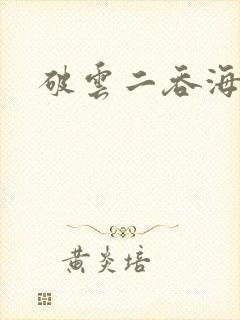 破雲二吞海
黄炎培